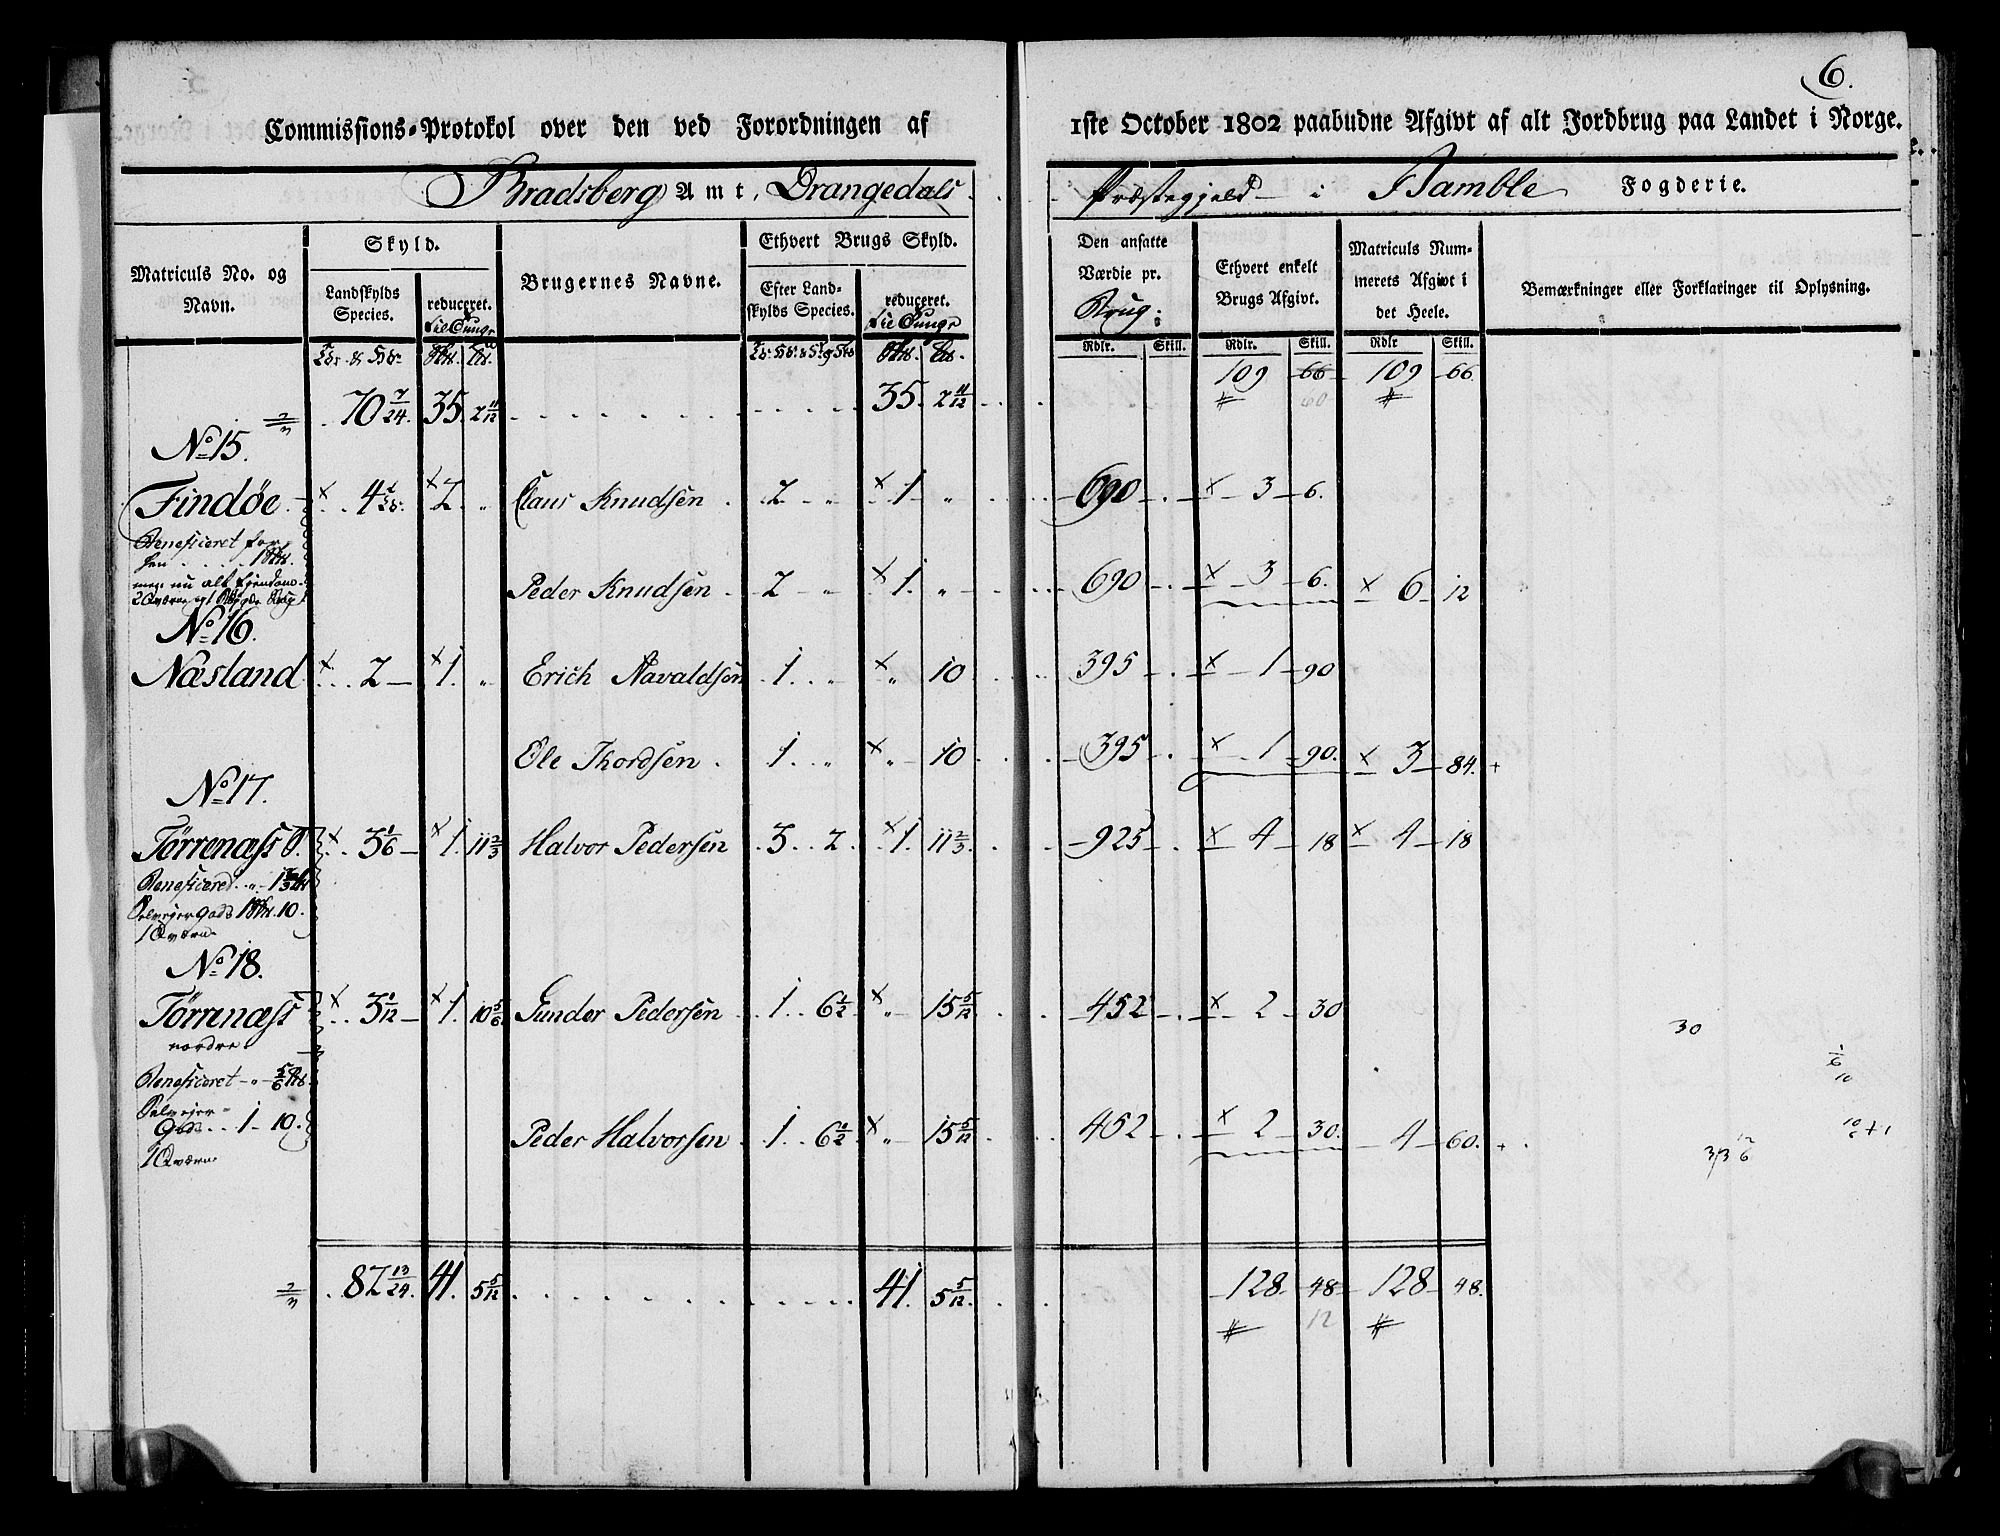 6.
Commissions-Protokol over den ved Forordningen af 1ste October 1802 paabudne Afgivt af alt Jordbrug paa Landet i Norge.
Bradsberg Amt, Drangedals Præstegjeld i Bamble Fogderie.
Matriculs No. og Navn.
Skyld.
Landskylds Species.
reduceret. til Tunge
Brugernes Navne.
Ethvert Brugs Skyld.
Efter Landskylds Species.
reduceret. til Tunge
Den ansatte Værdie pr. Brug.
Ethvert enkelt Brugs Afgivt.
Matriculs Nummerets Afgivt i det Heele.
Bemærkninger eller Forklaringer til Oplysning.
Rdlr. Skill. Rdlr. Skill. Rdlr Skill.
109 66 109 66
60
70 7/24. 35. 2 11/12 35. 2 11/12
No 15.
Findøe × 4 × 2 " Claus Knudsen 2 " × 1 " 690 × 3 6.
Beneficeret for-
hen 1
men nu alt Eiendom
2 Qværne og 1 Bøgde Saug
Peder Knudsen 2 " × 1. " 690 × 3 6. × 6 12
No 16.
Næsland × 2 × 1. " Erich Aavaldsen 1. " × " 10 395 × 1 90
Ole Thordsen 1. " × " 10 395 × 1 90. × 3 84. +
No 17.
Tørrenæss × 3 1/6 × 1. 11 2/3 Halvor Pedersen 3. 2. × 1. 11 2/3 925 × 4 18 × 4 18
Beneficeret " 1 2/3
Selvejer Gods 1 10.
1 Qværn
No 18.
Tørrenæss × 3 1/12 × 1. 10 5/6 Gunder Pedersen 1. 6 1/2 × " 15 5/12 452 × 2 30
nordre 30
Beneficeret " 5/6 1/6 10
Selvejer
Gods 1 10. Peder Halvorsen 1. 6 1/2 × " 15 5/12 452 × 2 30. 4 60. +
1 Qværn
87 13/24. 41. 5 5/12 41. 5 5/12. 128 48 128 48.
12